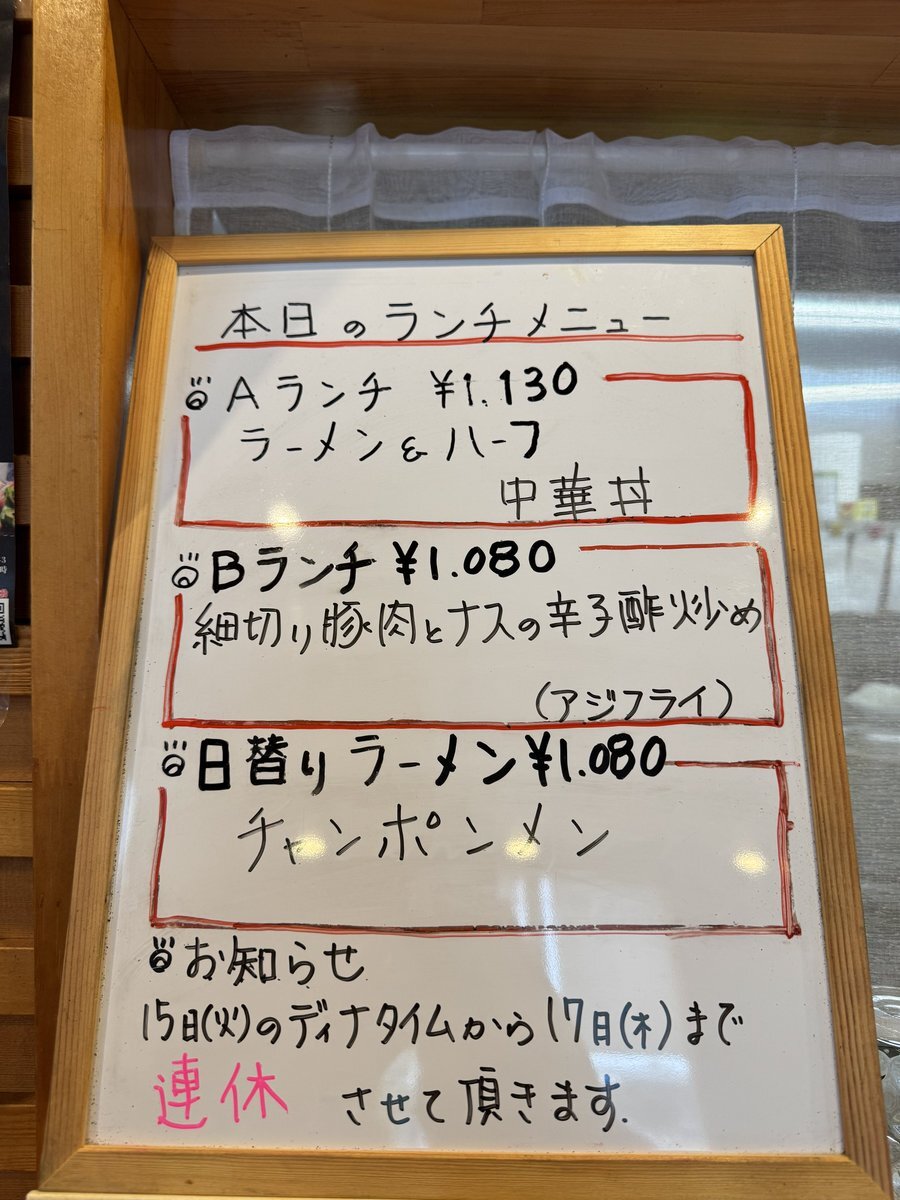 本日のランチメニュー
Aランチ ¥1.130
ラーメン&ハーフ
中華丼
Bランチ ¥1.080
細切り豚肉とナスの辛子酢炒め
(アジフライ)
日替りラーメン¥1.080
チャンポンメン
お知らせ
15日(火)のディナタイムから17日(木)まで
連休 させて頂きます.